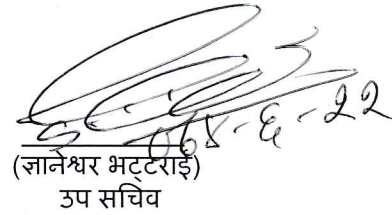 ०७४-६-२२
(ज्ञानेश्वर भट्टराई)
उप सचिव